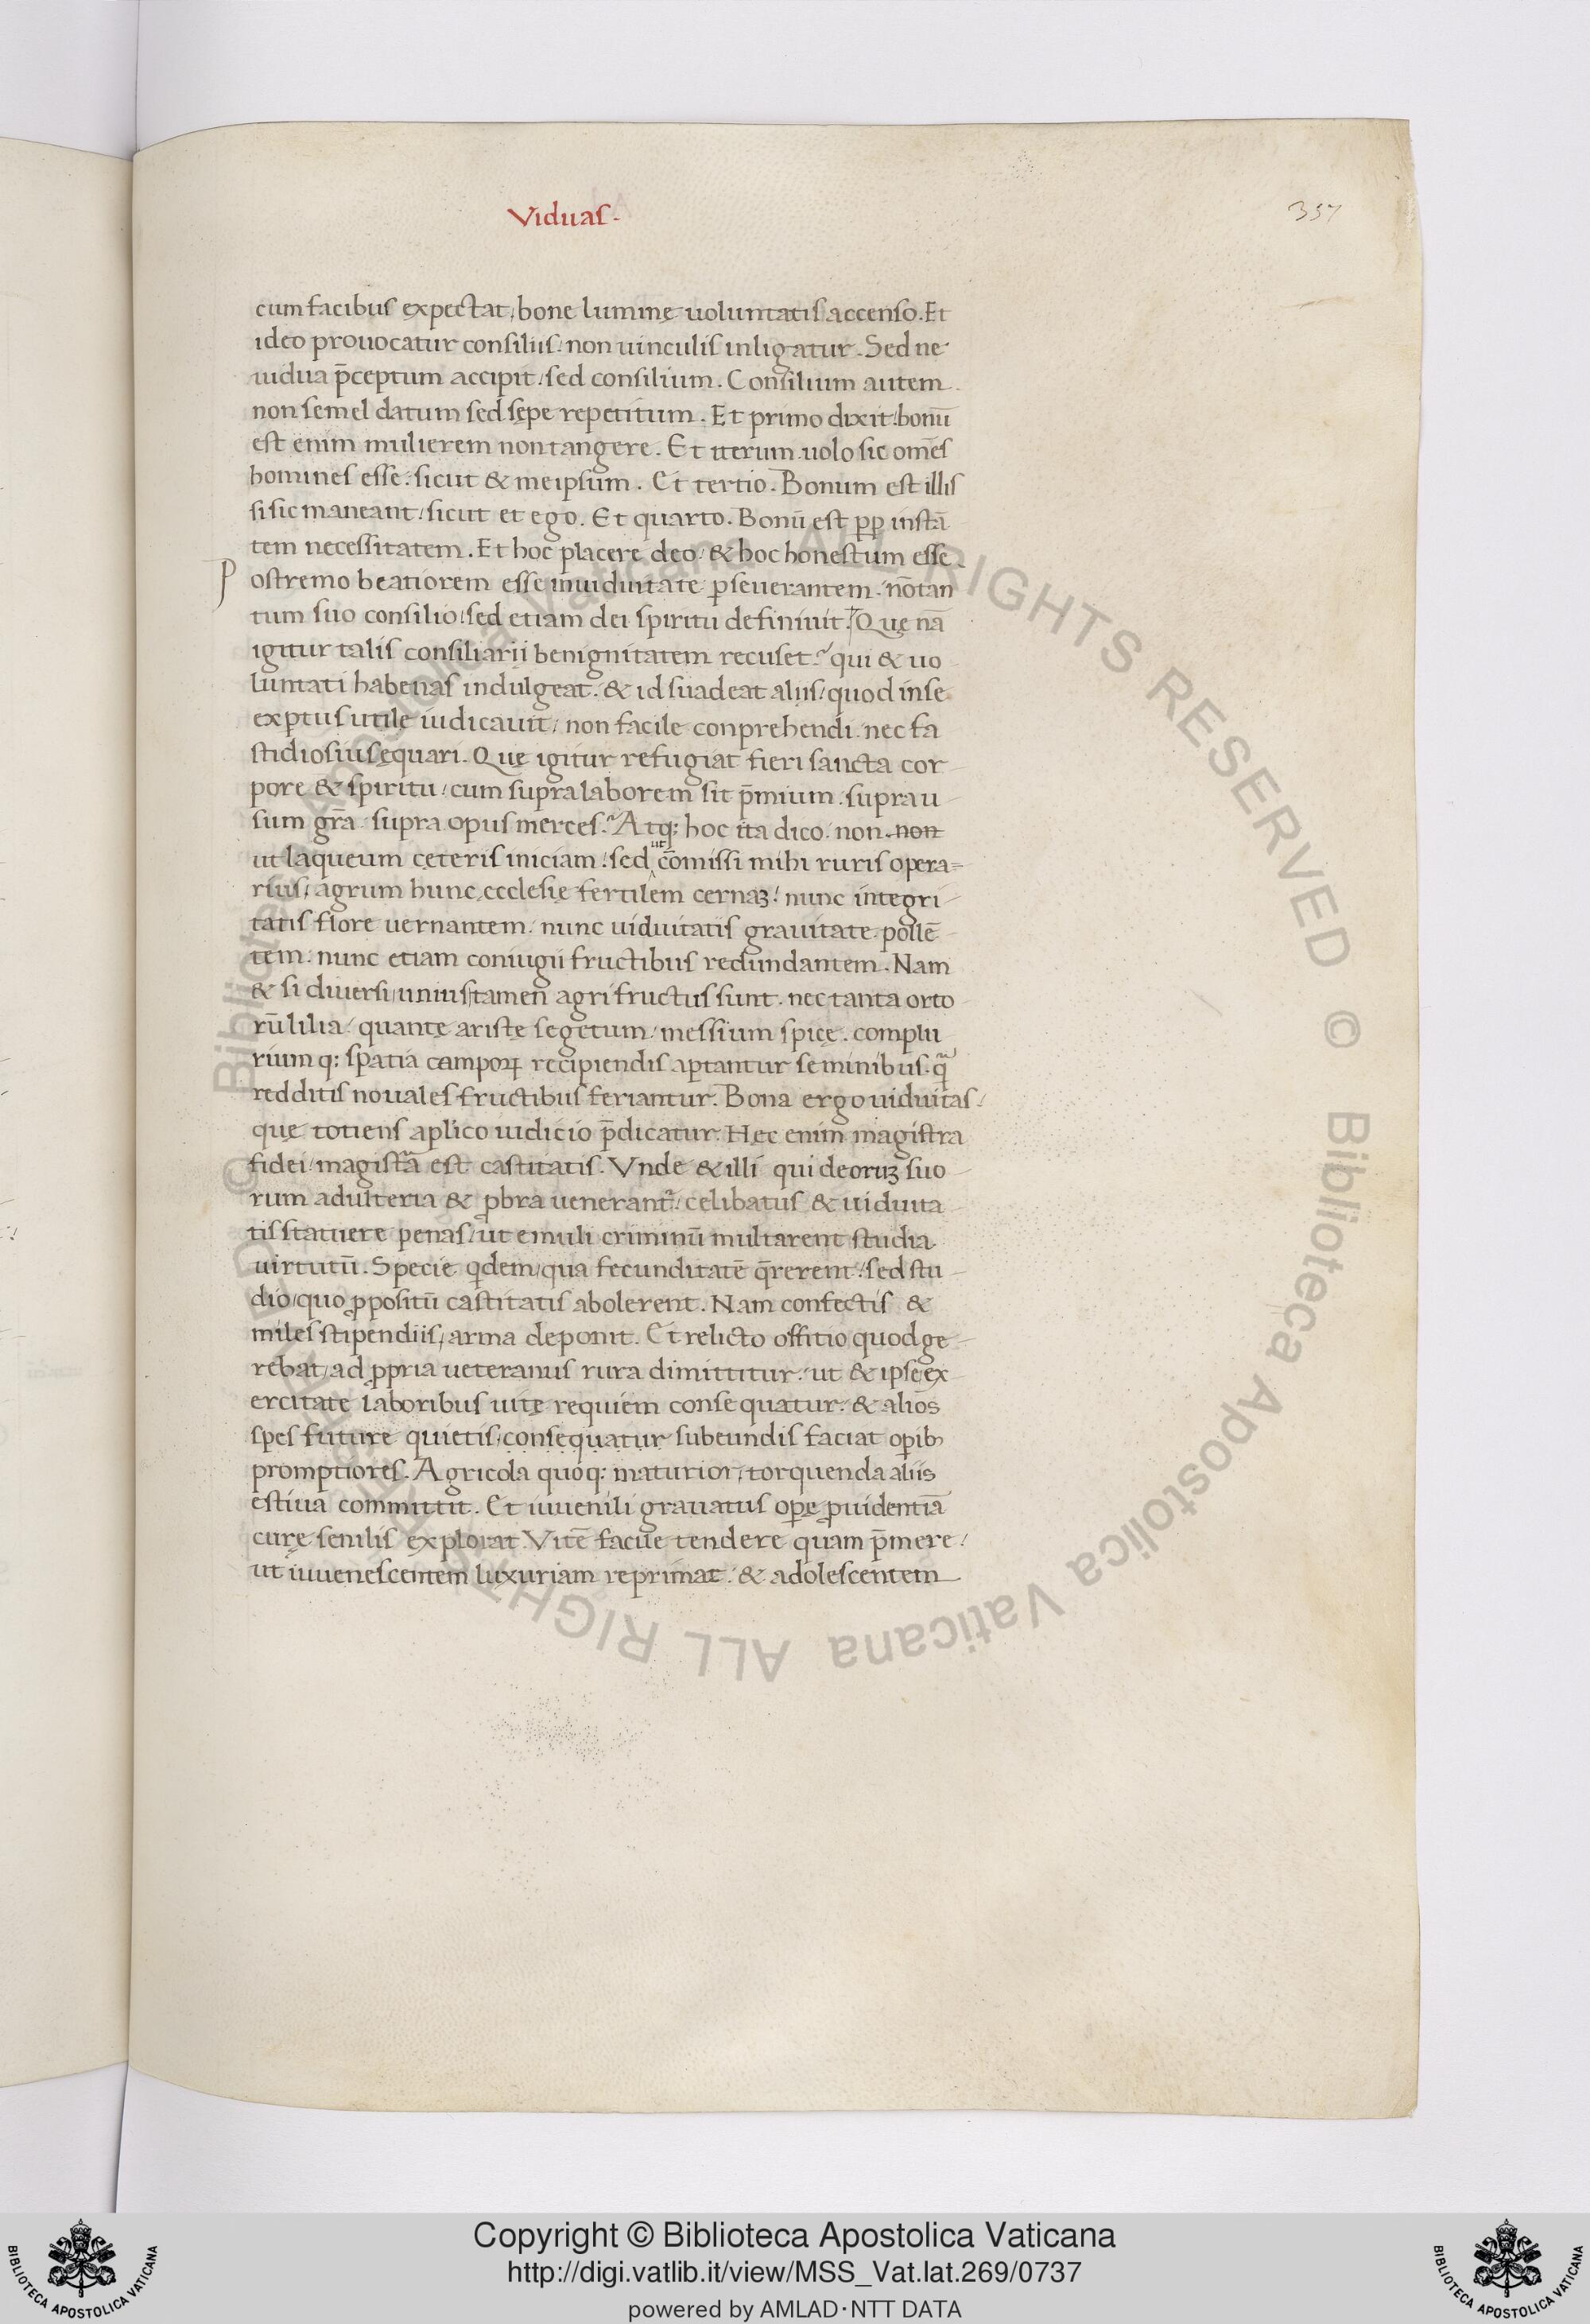 Viduas.
357
cum facibus expectat, bone luminę uoluntatis accenso. Et
ideo prouocatur consiliis: non uinculis inligatur. Sed ne
uidua p̄ceptum accipit: sed consilium. Consilium autem
non semel datum sed sępe repetitum. Et primo dixit: bonū
est enim mulierem non tangere. Et iterum. uolo sic om̄es
homines esse: sicut & me ipsum. Et tertio. Bonum est illis
si sic maneant: sicut et ego. Et quarto. Bonū est ꝓp instā
tem necessitatem. Et hoc placere deo: & hoc honestum esse.
Postremo beatiorem esse in uiduitate ꝑseuerantem. nōtan
tum suo consilio: sed etiam dei spiritu definiuit. Quę nā
igitur talis consiliarii benignitatem recuset? qui & uo
luntati habenas indulgeat. & id suadeat aliis: quod in se
exꝑtus utile iudicauit: non facile conprehendi. nec fa
stidiosius ęquari. Quę igitur refugiat fieri sancta cor
pore & spiritu: cum supra laborem sit p̄mium. supra u
sum gr̄a. supra opus merces? Atq: hoc ita dico. non non
ut laqueum ceteris iniciam: sed ut cōmissi mihi ruris opera=
rius, agrum hunc ecclesię fertilem cernaʒ: nunc integri
tatis flore uernantem. nunc uiduitatis grauitate pollē
tem. nunc etiam coniugii fructibus redundantem. Nam
& si diuersi, unius tamen agri fructus sunt. nec tanta orto
rū lilia: quantę aristę segetum: messium spicę. complu
rium q: spatia campoꝝ recipiendis aptantur seminibus. qᵃ̃
redditis nouales fructibus feriantur. Bona ergo uiduitas,
quę totiens aplico iudicio p̄dicatur. Hęc enim magistra
fidei: magistᵃ est castitatis. Vnde & illi qui deoruʒ suo
rum adulteria & ꝓbra uenerant᷑: celibatus & uiduita
tis statuere penas: ut emuli criminū multarent studia
uirtutū. Specie qdem, qua fecunditatē q̄rerent: sed stu
dio, quo ꝓpositū castitatis abolerent. Nam confectis &
miles stipendiis, arma deponit. Et relicto offitio quod ge
rebat, ad ꝓpria ueteranus rura dimittitur. ut & ipse ex
ercitate laboribus uitę requiem consequatur. & alios
spes future quietis, consequatur subeundis faciat oꝑib
promptiores. Agricola quoq: maturior, torquenda aliis
estiua committit. Et iuuenili grauatus oꝑe ꝓuidentiā
curę senilis explorat. Vitē facile tendere quam p̄mere:
ut iuuenescentem luxuriam reprimat. & adolescentem
Copyright © Biblioteca Apostolica Vaticana
http://digi.vatlib.it/view/MSS_Vat.lat.269/0737
powered by AMLAD·NTT DATA
BIBLIOTECA APOSTOLICA VATICANA
BIBLIOTECA APOSTOLICA VATICANA
© Biblioteca Apostolica Vaticana ALL RIGHTS RESERVED © Biblioteca Apostolica Vaticana ALL RIGHTS RESERVED